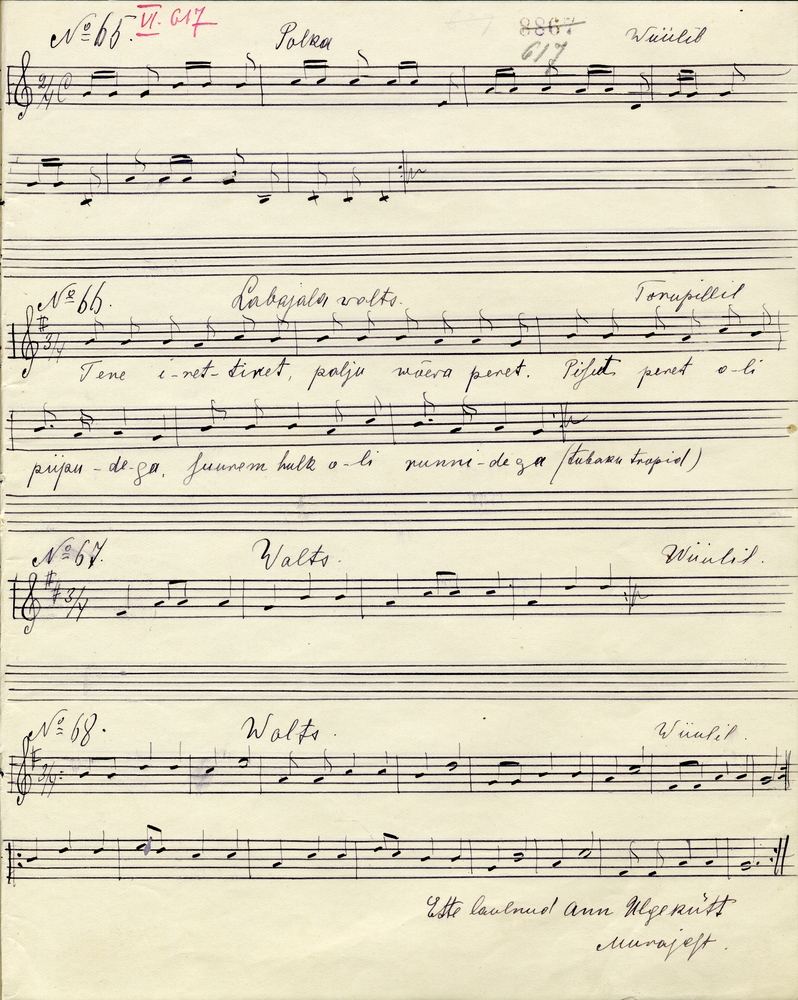 No 65. VI. 617 Polka 8867 Wiiulil
617
2/4 C
No 66. Labajala walts. Torupillil
3/4
Tene i-ret-tinet, palju wõera peret. Pisut peret o-li
piipu-de-ga, suurem hulk o-li runni-de ga (tubaku tropid)
No 67. Walts. Wiiulil.
3/4
No 68. Walts. Wiiulil.
3/4
Ette laulnud Ann Ilgekütt